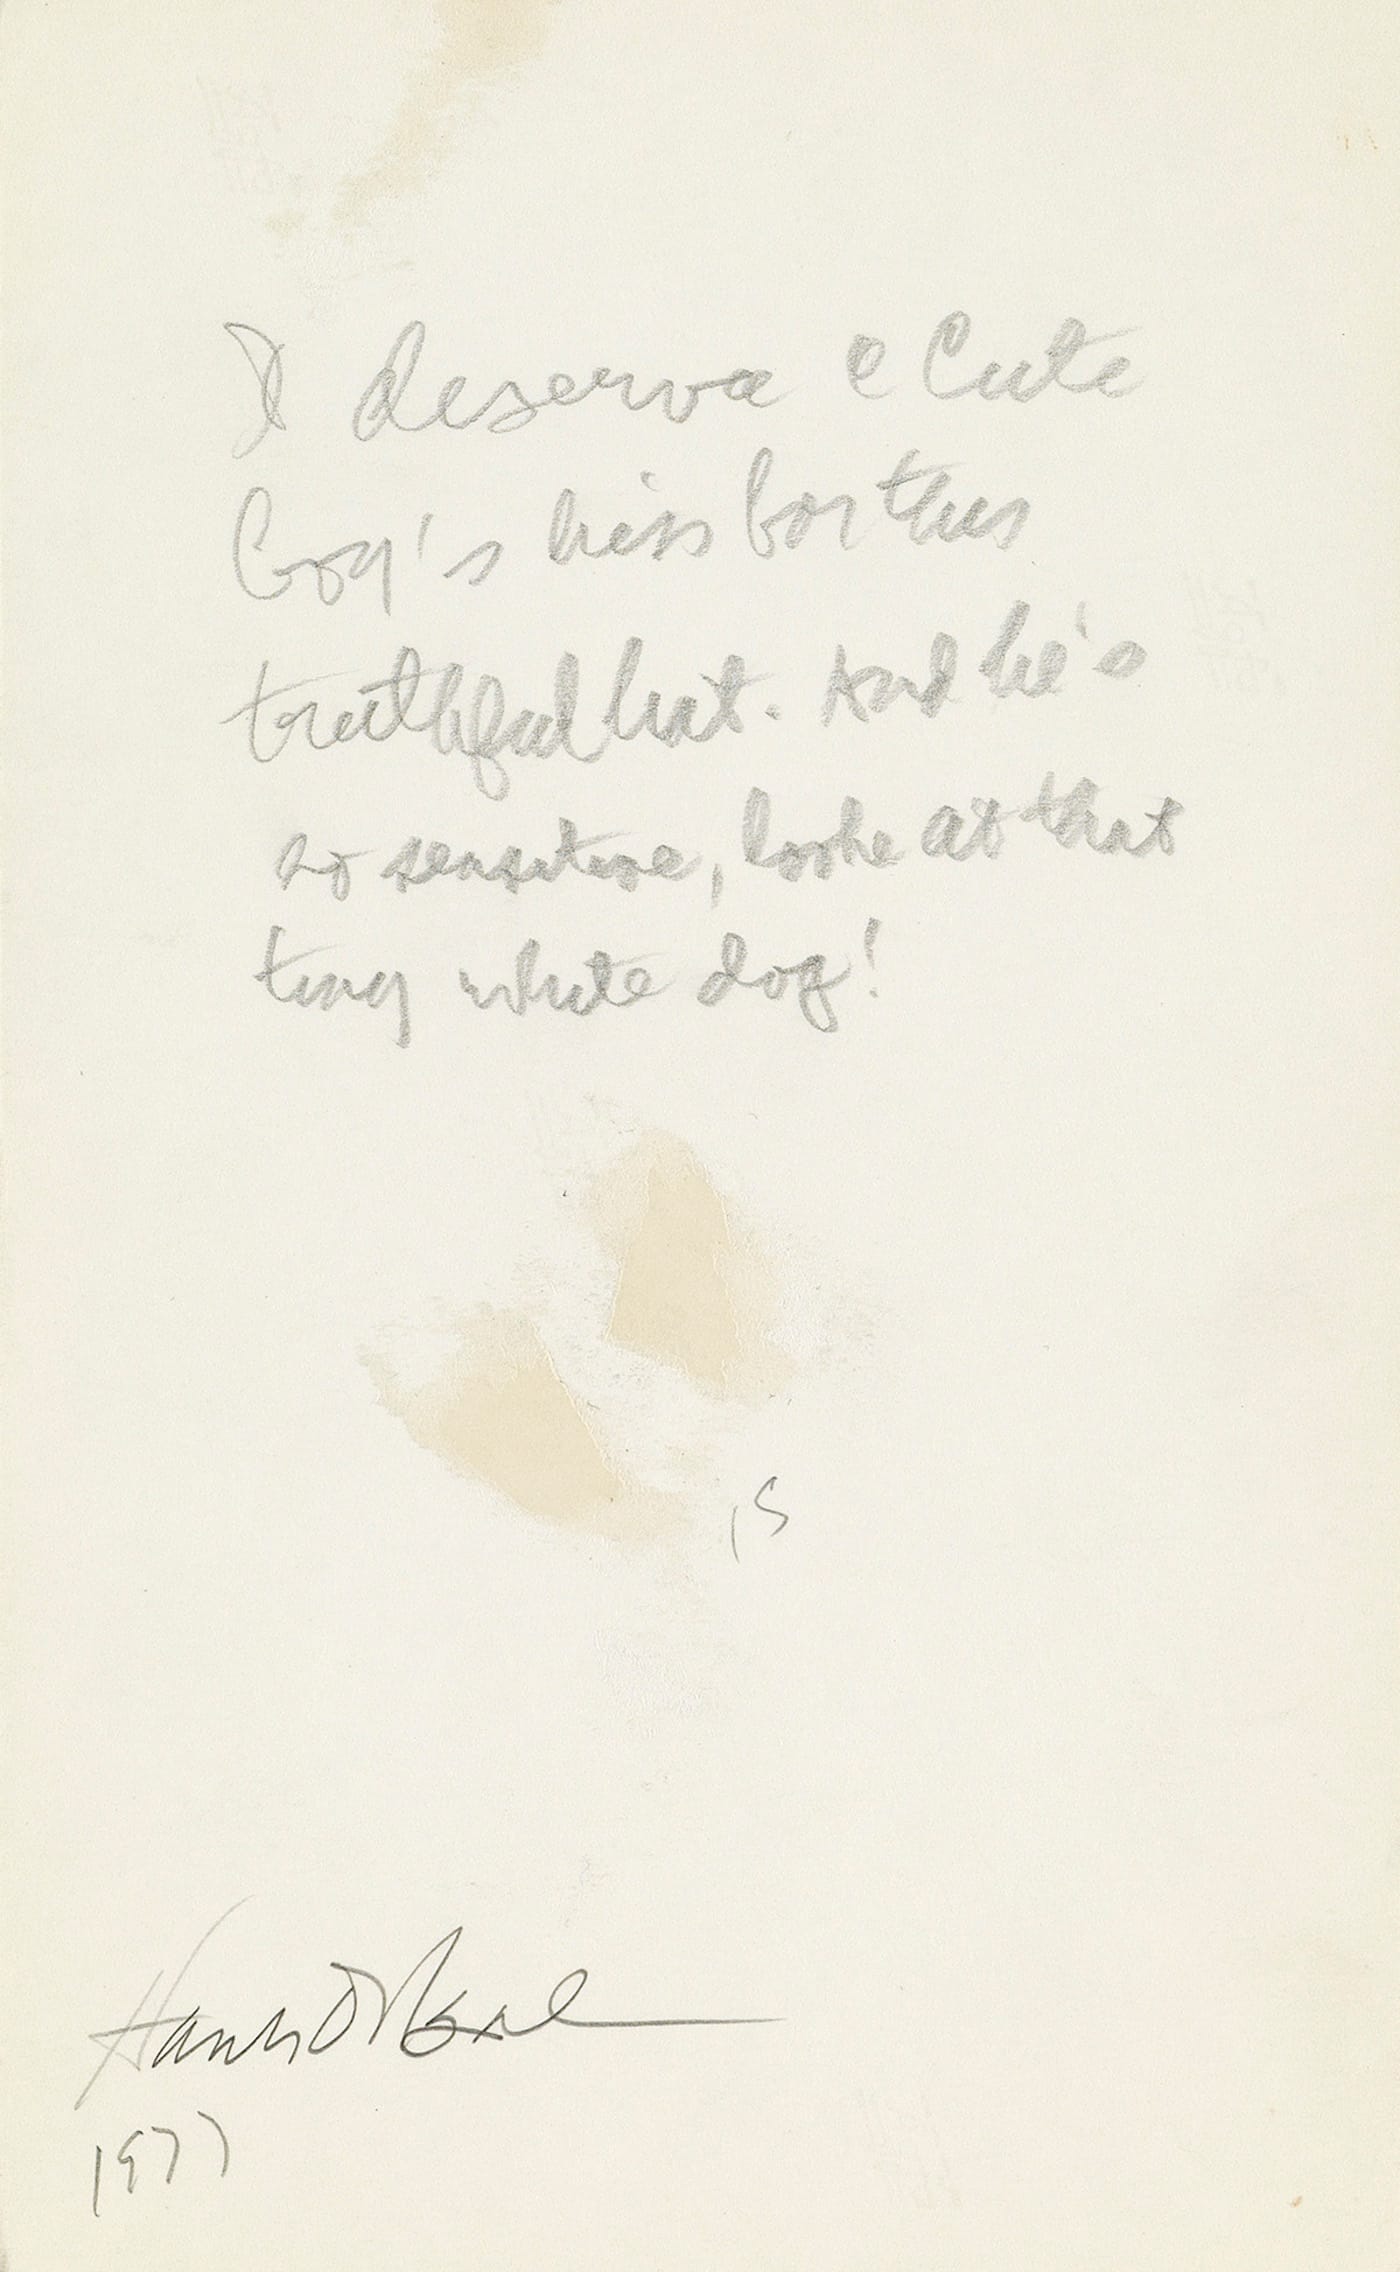 I deserve a cute
kiss for this
truthful. And he's
so sensitive, looke at that
tiny white dog!
15
1977